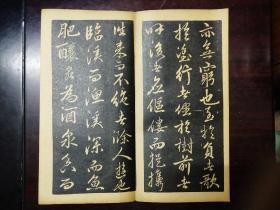 亦無窮也至於負者歌
於塗行者休於樹前者
呼後者應傴僂而提攜
往來而不絕者滁人遊也
臨溪而漁溪深而魚
肥釀泉為酒泉香而